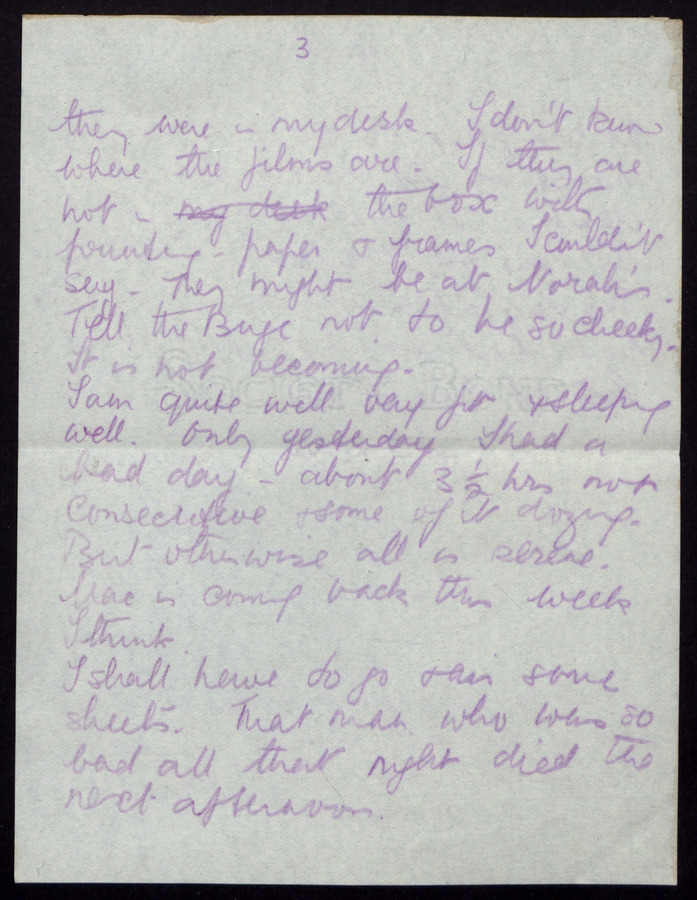 3
they were in my desk. I don't know
where the films are. If they are
not in my desk the box with
printing-paper & frames I couldn't
say. They might be at Norah's.
Tell the Buge not to be so cheeky.
It is not becoming.
I am quite well very fit & sleeping
well. Only yesterday I had a
bad day - about 3½ hrs not
consecutive & some of it dozing.
But otherwise all is serene.
Mac is coming back this week
I think.
I shall have to go & air some
sheets. That man who was so
bad all that night died the
next afternoon.